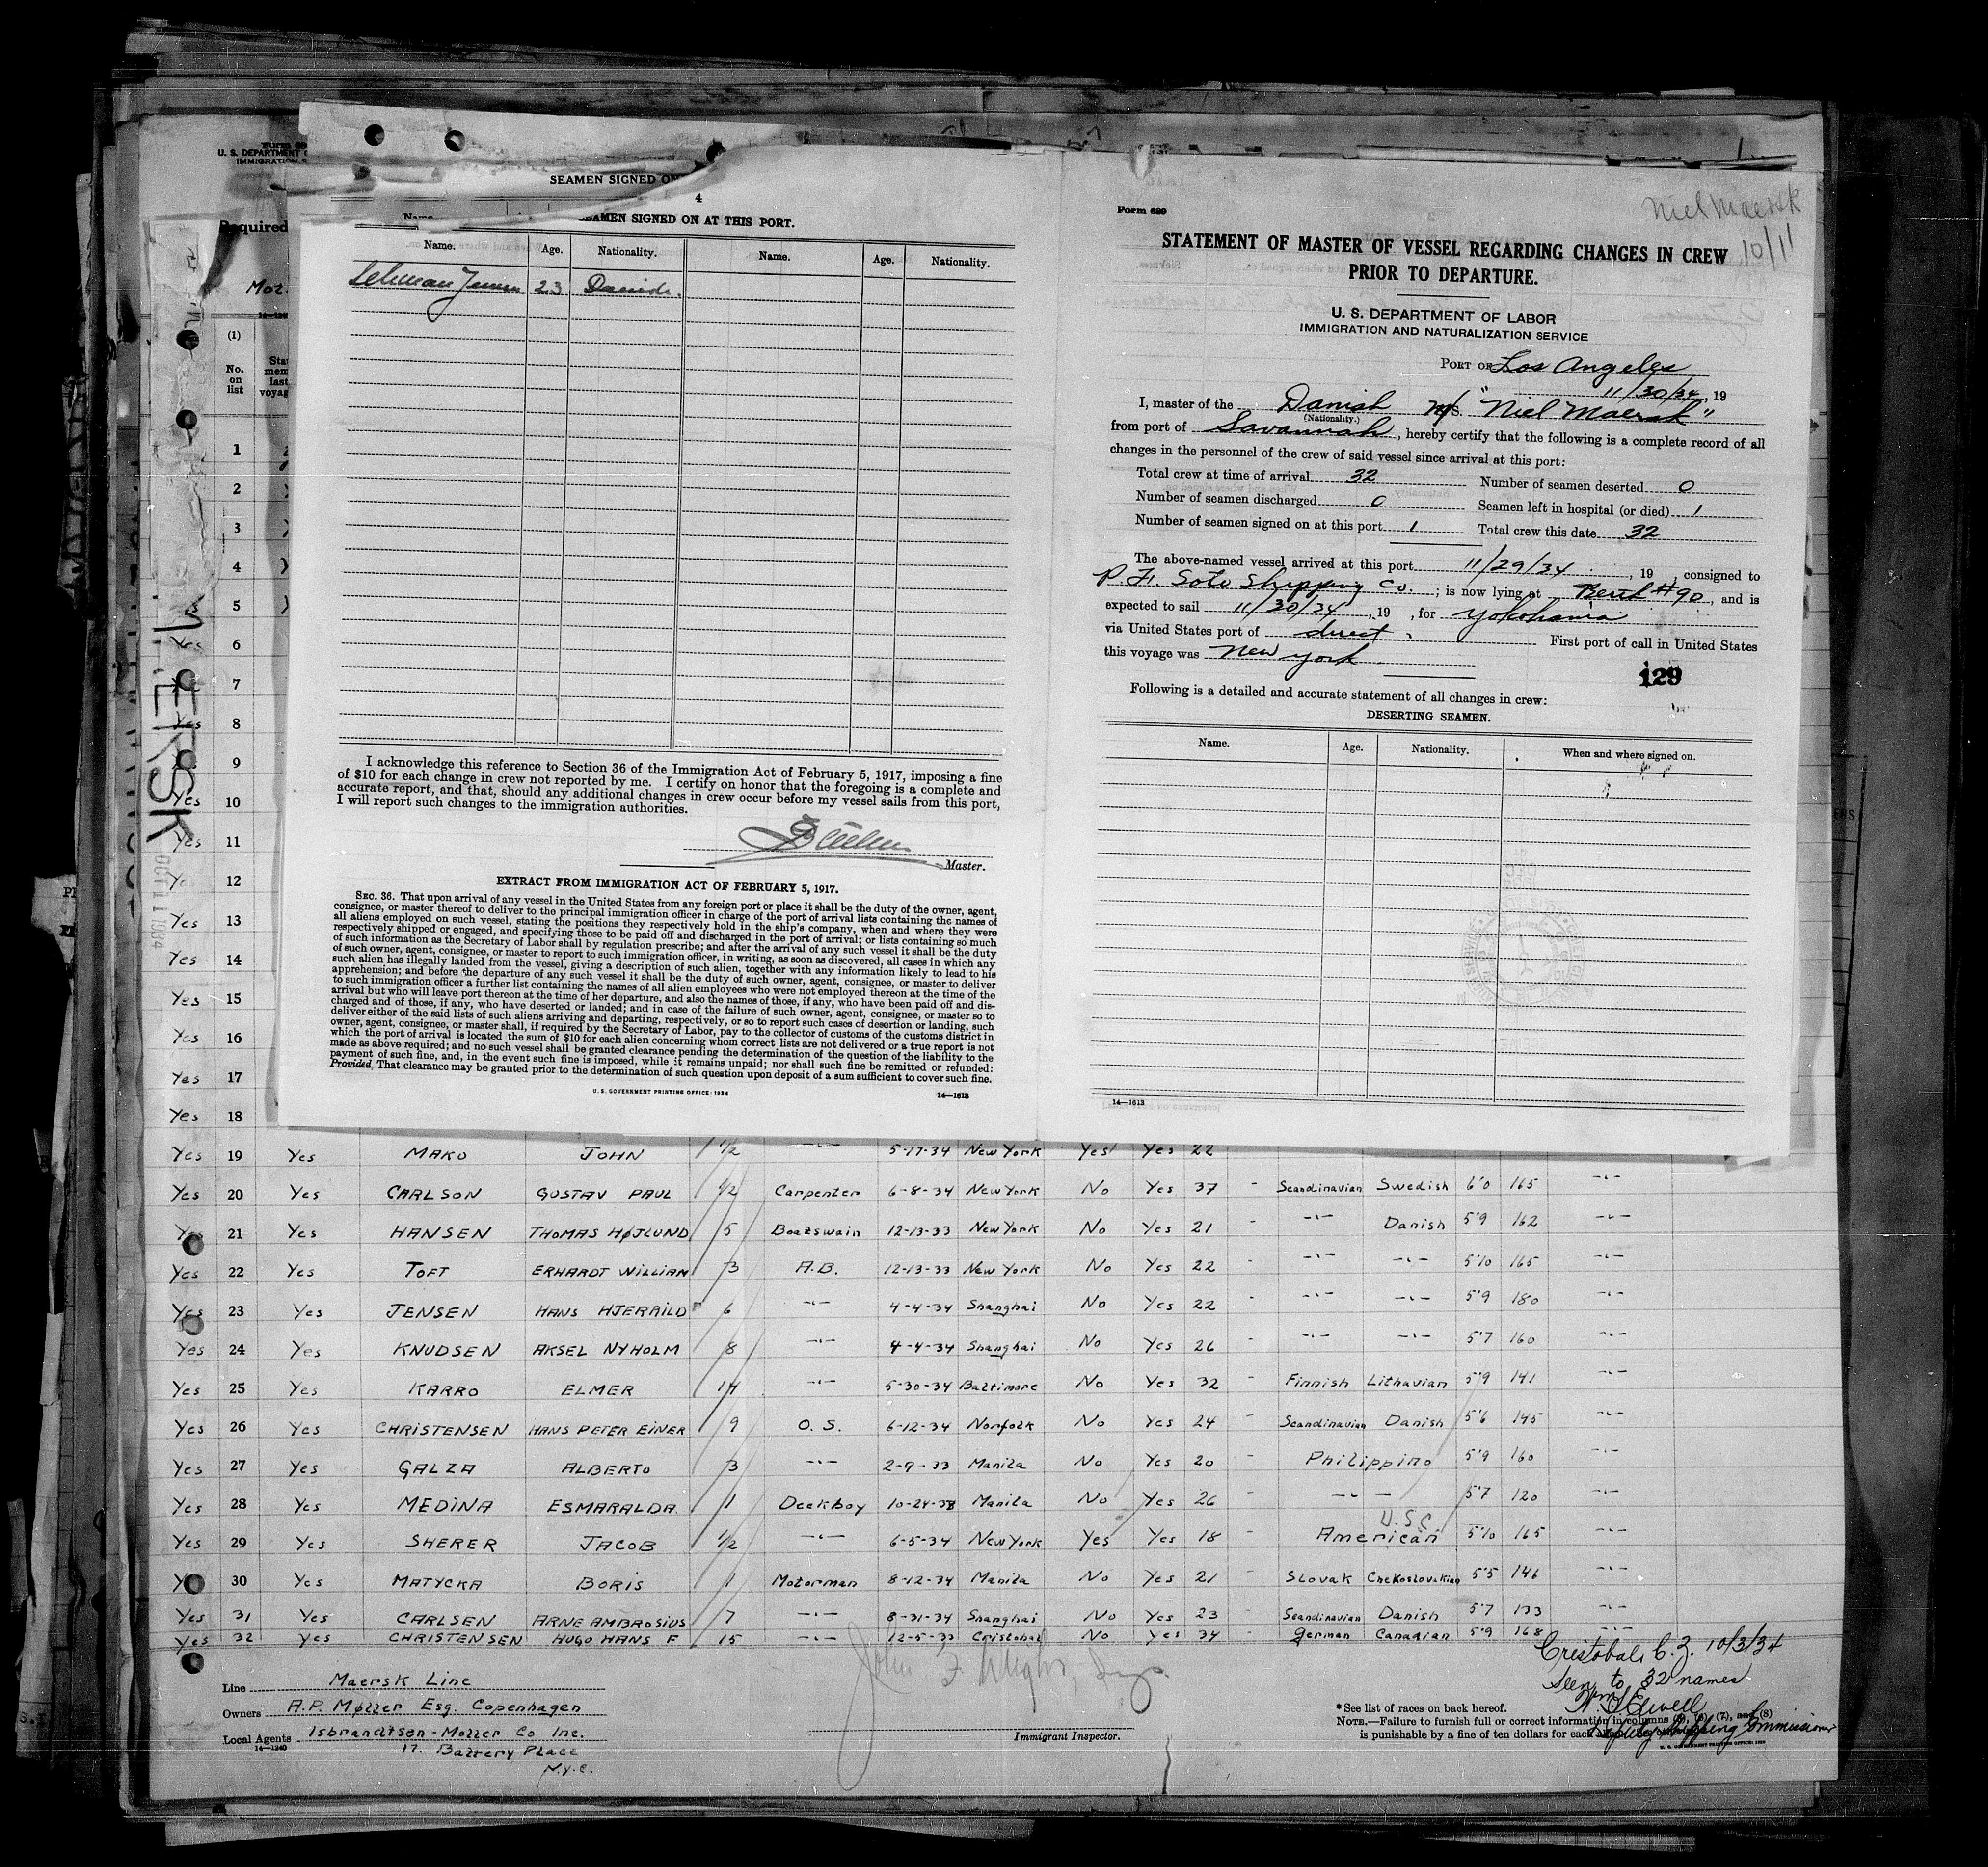 Form 689
U. S. DEPARTMENT
IMMIGRATION
Required
Mot.
(1)
No.
on
list
SEAMEN SIGNED ON
4
SEAMEN SIGNED ON AT THIS PORT.
Name. Age. Nationality. Name. Age. Nationality.
Jensen 23 Danish.
I acknowledge this reference to Section 36 of the Immigration Act of February 5, 1917, imposing a fine
of $10 for each change in crew not reported by me. I certify on honor that the foregoing is a complete and
accurate report, and that, should any additional changes in crew occur before my vessel sails from this port,
I will report such changes to the immigration authorities.
Master.
EXTRACT FROM IMMIGRATION ACT OF FEBRUARY 5, 1917.
SEC. 36. That upon arrival of any vessel in the United States from any foreign port or place it shall be the duty of the owner, agent,
consignee, or master thereof to deliver to the principal immigration officer in charge of the port of arrival lists containing the names of
all aliens employed on such vessel, stating the positions they respectively hold in the ship's company, when and where they were
respectively shipped or engaged, and specifying those to be paid off and discharged in the port of arrival; or lists containing so much
of such information as the Secretary of Labor shall by regulation prescribe; and after the arrival of any such vessel it shall be the duty
of such owner, agent, consignee, or master to report to such immigration officer, in writing, as soon as discovered, all cases in which any
such alien has illegally landed from the vessel, giving a description of such alien, together with any information likely to lead to his
apprehension; and before the departure of any such vessel it shall be the duty of such owner, agent, consignee, or master to deliver
to such immigration officer a further list containing the names of all alien employees who were not employed thereon at the time of the
arrival but who will leave port thereon at the time of her departure, and also the names of those, if any, who have been paid off and dis-
charged and of those, if any, who have deserted or landed; and in case of the failure of such owner, agent, consignee, or master so to
deliver either of the said lists of such aliens arriving and departing, respectively, or so to report such cases of desertion or landing, such
owner, agent, consignee, or master shall, if required by the Secretary of Labor, pay to the collector of customs of the customs district in
which the port of arrival is located the sum of $10 for each alien concerning whom correct lists are not delivered or a true report is not
made as above required; and no such vessel shall be granted clearance pending the determination of the question of the liability to the
payment of such fine, and, in the event such fine is imposed, while it remains unpaid; nor shall such fine be remitted or refunded:
Provided, That clearance may be granted prior to the determination of such question upon deposit of a sum sufficient to cover such fine.
U. S. GOVERNMENT PRINTING OFFICE: 1934 14—1613
Niel Maersk
10/11
Form 689
STATEMENT OF MASTER OF VESSEL REGARDING CHANGES IN CREW
PRIOR TO DEPARTURE.
U. S. DEPARTMENT OF LABOR
IMMIGRATION AND NATURALIZATION SERVICE
PORT OF Los Angeles
11/30/34, 19
I, master of the Danish M/S. "Niel Maersk"
(Nationality.)
from port of Savannah, hereby certify that the following is a complete record of all
changes in the personnel of the crew of said vessel since arrival at this port:
Total crew at time of arrival 32 Number of seamen deserted 0
Number of seamen discharged 0 Seamen left in hospital (or died) 1
Number of seamen signed on at this port 1 Total crew this date 32
The above-named vessel arrived at this port 11/29/34, 19 , consigned to
P. H. Soto Shipping Co. ; is now lying at Berth #90, and is
expected to sail 11/30/34, 19 , for Yokohama
via United States port of direct. First port of call in United States
this voyage was New York
129
Following is a detailed and accurate statement of all changes in crew:
DESERTING SEAMEN.
Name. Age. Nationality. When and where signed on.
14—1613
ERSK
OCT 11 1934
1
2
3
4
5
Yes 6
7
Yes 8
9
Yes 10
Yes 11
12
Yes 13
Yes 14
Yes 15
Yes 16
Yes 17
Yes 18
Yes 19 Yes MAKO JOHN 1/2 -"- 5-17-34 New York Yes Yes 22
Yes 20 Yes CARLSON GUSTAV PAUL 1/2 Carpenter 6-8-34 New York No Yes 37 - Scandinavian Swedish 6'0 165 -"-
Yes 21 Yes HANSEN THOMAS HØJLUND 5 Boatswain 12-13-33 New York No Yes 21 - -"- Danish 5'9 162 -"-
Yes 22 Yes TOFT ERHARDT WILLIAM 3 A.B. 12-13-33 New York No Yes 22 - -"- -"- 5'10 165 -"-
Yes 23 Yes JENSEN HANS HJERRILD 6 -"- 4-4-34 Shanghai No Yes 22 - -"- -"- 5'9 180 -"-
Yes 24 Yes KNUDSEN AKSEL NYHOLM 8 -"- 4-4-34 Shanghai No Yes 26 - -"- -"- 5'7 160 -"-
Yes 25 Yes KARRO ELMER 14 -"- 5-30-34 Baltimore No Yes 32 - Finnish Lithavian 5'9 141 -"-
Yes 26 Yes CHRISTENSEN HANS PETER EINER 9 O.S. 6-12-34 Norfolk No Yes 24 - Scandinavian Danish 5'6 145 -"-
Yes 27 Yes GALZA ALBERTO 3 -"- 2-9-33 Manila No Yes 20 - Philippino 5'9 160 -"-
Yes 28 Yes MEDINA ESMARALDA 1 Deckboy 10-24-33 Manila No Yes 26 - -"- 5'7 120 -"-
U.S.C.
Yes 29 Yes SHERER JACOB 1/2 -"- 6-5-34 New York Yes Yes 18 - American 5'10 165 -"-
Yes 30 Yes MATYCKA BORIS 1 Motorman 8-12-34 Manila No Yes 21 - Slovak Chekoslovakian 5'5 146 -"-
Yes 31 Yes CARLSEN ARNE AMBROSIUS 7 -"- 8-31-34 Shanghai No Yes 23 - Scandinavian Danish 5'7 133 -"-
Yes 32 Yes CHRISTENSEN HUGO HANS F 15 -"- 12-5-33 Cristobal No Yes 34 - German Canadian 5'9 168 -"-
Line Maersk Line
Owners A.P. Møller Esq. Copenhagen
Local Agents Isbrandtsen-Moller Co Inc.
14—1240 17. Battery Place
N.Y.C.
John F. Wright, Insp.
Immigrant Inspector.
Cristobal C.Z. 10/3/34
Seen to 32 names
Deputy Shipping Commissioner
* See list of races on back hereof.
NOTE.—Failure to furnish full or correct information in columns (5), (6), (7), and (8)
is punishable by a fine of ten dollars for each alien.